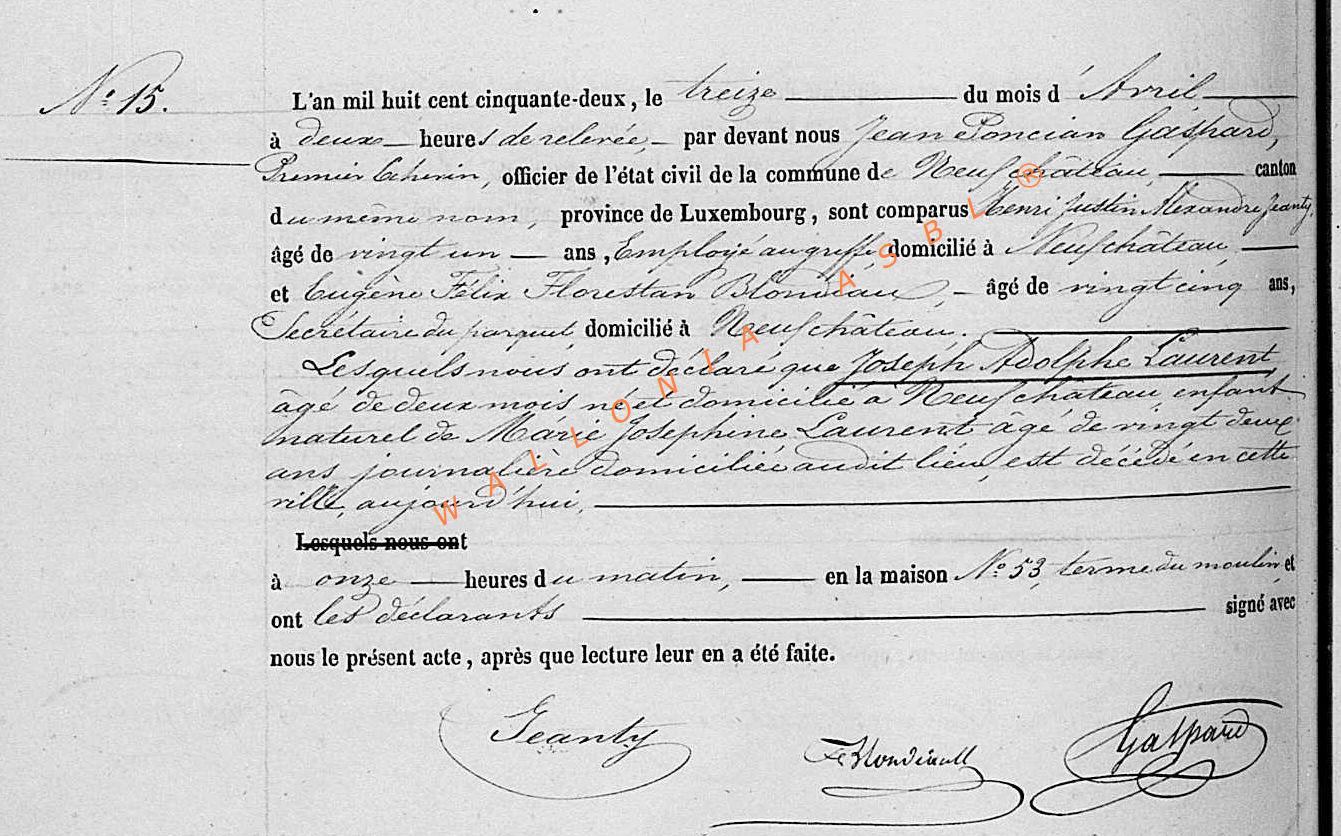 N° 15.
L'an mil huit cent cinquante-deux, le treize du mois d'Avril
à deux heures de relevée, par devant nous Jean Poncian Gaspard,
Premier Echevin, officier de l'état civil de la commune de Neufchâteau, canton
du même nom, province de Luxembourg, sont comparus Henri Justin Alexandre Jeanty,
âgé de vingt un ans, Employé au greffe, domicilié à Neufchâteau,
et Eugène Félix Florestan Blondiau, âgé de vingt cinq ans,
Secrétaire du parquet, domicilié à Neufchâteau.
Lesquels nous ont déclaré que Joseph Adolphe Laurent
âgé de deux mois né et domicilié à Neufchâteau, enfant
naturel de Marie Josephine Laurent âgé de vingt deux
ans, journalière domiciliée audit lieu, est décédé en cette
ville, aujourd'hui,
Lesquels nous ont
à onze heures du matin, en la maison N° 53, terme du moulin, et
ont les déclarants signé avec
nous le présent acte, après que lecture leur en a été faite.
Jeanty
Gaspard
WALLONIA ASBL ®